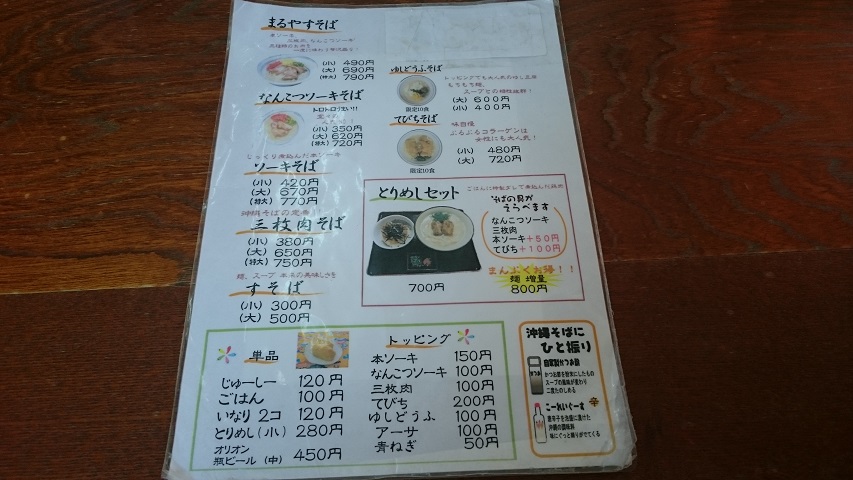 まるやすそば
本ソーキ
三枚肉、なんこつソーキ
(小) 490円
(大) 690円
(特大) 790円
なんこつソーキそば
トロトロうまい!!
(小) 350円
(大) 620円
(特大) 720円
じっくり煮込んだ本ソーキ
ソーキそば
(小) 420円
(大) 670円
(特大) 770円
沖縄そばの定番!
三枚肉そば
(小) 380円
(大) 650円
(特大) 750円
麺、スープ 本来の美味しさを
すそば
(小) 300円
(大) 500円
ゆしどうふそば
限定10食
(大) 600円
(小) 400円
てびちそば
味自慢
ぷるぷるコラーゲンは
女性にも大人気!
限定10食
(小) 480円
(大) 720円
とりめしセット
700円
そばの具が
えらべます
なんこつソーキ
三枚肉
本ソーキ+50円
てびち+100円
まんぷくお得!!
麺 増量
800円
単品
じゅーしー 120円
ごはん 100円
いなり 2コ 120円
とりめし(小) 280円
オリオン
瓶ビール (中) 450円
トッピング
本ソーキ 150円
なんこつソーキ 100円
三枚肉 100円
てびち 200円
ゆしどうふ 100円
アーサ 100円
青ねぎ 50円
沖縄そばに
ひと振り
自家製かつお粉
かつお節を粉末にしたもの
スープの風味が変わり
二度たのしめる
こーれーぐーす
島唐辛子を泡盛に漬けた
沖縄の調味料
味にぐっと締りがでてくる